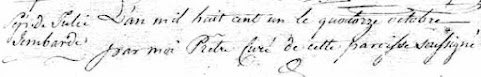 Sép. de Julie L'an mil huit cent un le quatorze octobre
Lombarde par moi Prêtre curé de cette paroisse soussigné